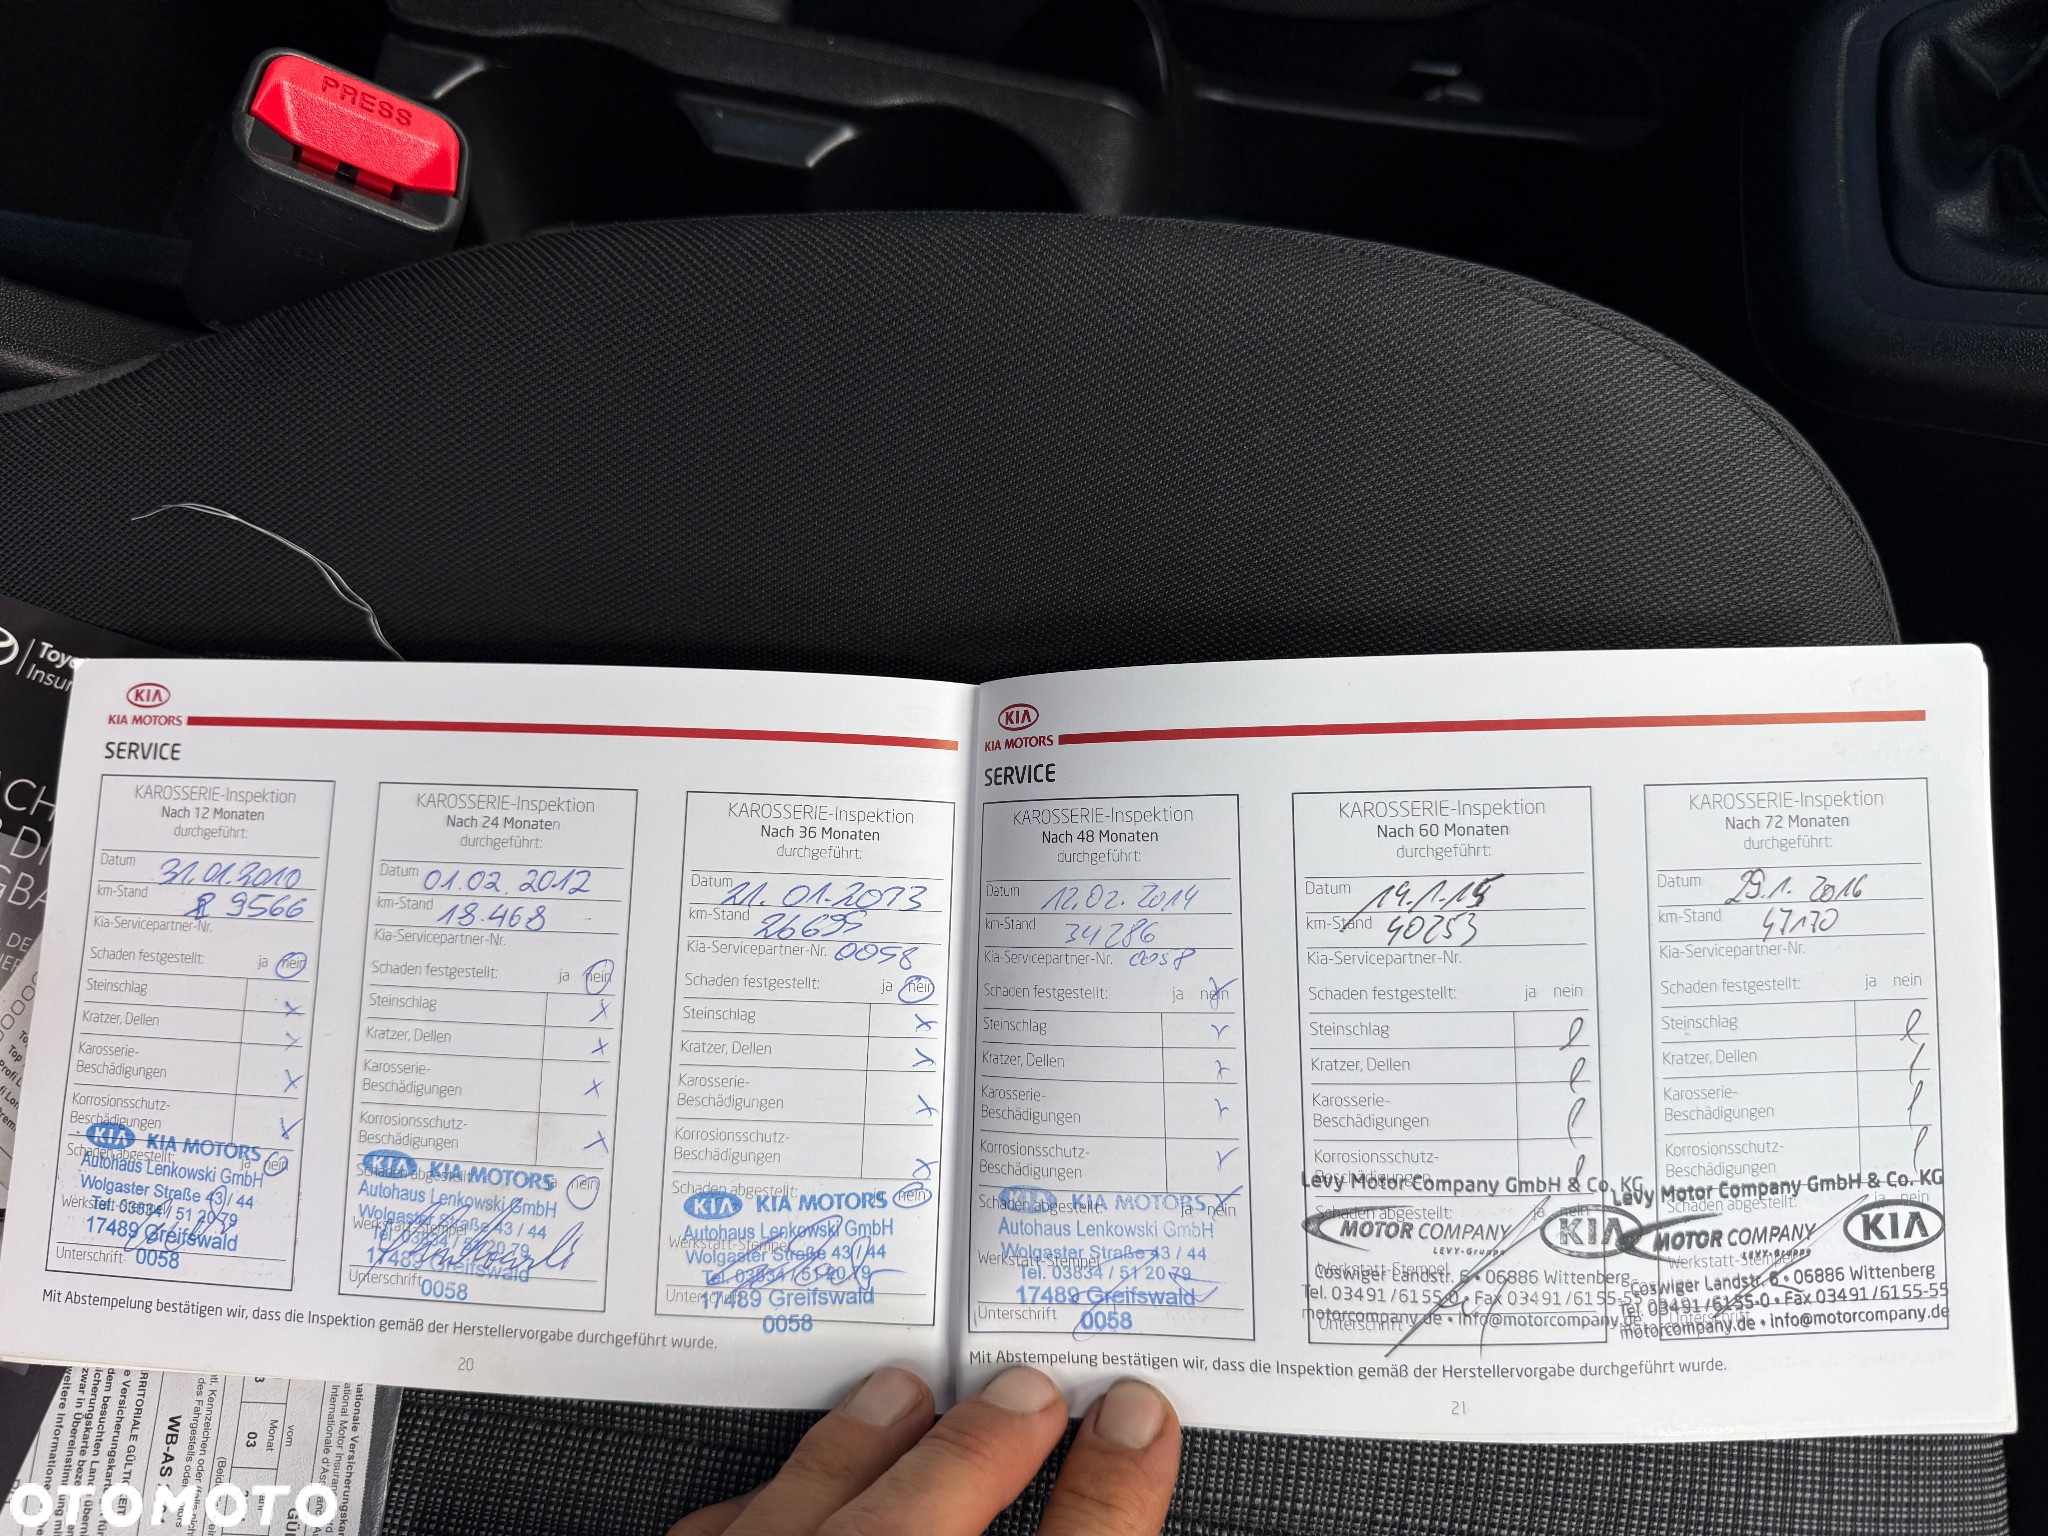 PRESS
KIA
KIA MOTORS
SERVICE
KAROSSERIE-Inspektion
Nach 12 Monaten
durchgeführt:
Datum 31.01.2010
km-Stand 9566
Kia-Servicepartner-Nr.
Schaden festgestellt: ja nein
Steinschlag x
Kratzer, Dellen x
Karosserie-
Beschädigungen x
Korrosionsschutz-
Beschädigungen x
Schaden abgestellt: ja nein
KIA KIA MOTORS
Autohaus Lenkowski GmbH
Wolgaster Straße 43 / 44
Tel. 03834 / 51 20 79
17489 Greifswald
0058
Werkstatt-Stempel
Unterschrift
KAROSSERIE-Inspektion
Nach 24 Monaten
durchgeführt:
Datum 01.02.2012
km-Stand 18.468
Kia-Servicepartner-Nr.
Schaden festgestellt: ja nein
Steinschlag x
Kratzer, Dellen x
Karosserie-
Beschädigungen x
Korrosionsschutz-
Beschädigungen x
Schaden abgestellt: ja
KIA KIA MOTORS
Autohaus Lenkowski GmbH
Wolgaster Straße 43 / 44
Tel. 03834 / 51 20 79
17489 Greifswald
0058
Werkstatt-Stempel
Unterschrift
KAROSSERIE-Inspektion
Nach 36 Monaten
durchgeführt:
Datum 21.01.2013
km-Stand 26695
Kia-Servicepartner-Nr. 0058
Schaden festgestellt: ja nein
Steinschlag x
Kratzer, Dellen x
Karosserie-
Beschädigungen x
Korrosionsschutz-
Beschädigungen x
Schaden abgestellt: ja nein
KIA KIA MOTORS
Autohaus Lenkowski GmbH
Wolgaster Straße 43 / 44
Tel. 03834 / 51 20 79
17489 Greifswald
0058
Werkstatt-Stempel
Unterschrift
Mit Abstempelung bestätigen wir, dass die Inspektion gemäß der Herstellervorgabe durchgeführt wurde.
20
KIA
KIA MOTORS
SERVICE
KAROSSERIE-Inspektion
Nach 48 Monaten
durchgeführt:
Datum 12.02.2014
km-Stand 34286
Kia-Servicepartner-Nr. 0058
Schaden festgestellt: ja nein
Steinschlag x
Kratzer, Dellen x
Karosserie-
Beschädigungen x
Korrosionsschutz-
Beschädigungen x
Schaden abgestellt: ja nein
KIA KIA MOTORS
Autohaus Lenkowski GmbH
Wolgaster Straße 43 / 44
Tel. 03834 / 51 20 79
17489 Greifswald
0058
Werkstatt-Stempel
Unterschrift
KAROSSERIE-Inspektion
Nach 60 Monaten
durchgeführt:
Datum 19.1.15
km-Stand 40253
Kia-Servicepartner-Nr.
Schaden festgestellt: ja nein
Steinschlag
Kratzer, Dellen
Karosserie-
Beschädigungen
Korrosionsschutz-
Beschädigungen
Schaden abgestellt: ja nein
Levy Motor Company GmbH & Co. KG
MOTOR COMPANY KIA
LEVY-Gruppe
Werkstatt-Stempel
Coswiger Landstr. 6 • 06886 Wittenberg
Tel. 03491 / 6155-0 • Fax 03491 / 6155-55
motorcompany.de • info@motorcompany.de
Unterschrift
KAROSSERIE-Inspektion
Nach 72 Monaten
durchgeführt:
Datum 29.1.2016
km-Stand 47170
Kia-Servicepartner-Nr.
Schaden festgestellt: ja nein
Steinschlag
Kratzer, Dellen
Karosserie-
Beschädigungen
Korrosionsschutz-
Beschädigungen
Schaden abgestellt: ja nein
Levy Motor Company GmbH & Co. KG
MOTOR COMPANY KIA
LEVY-Gruppe
Werkstatt-Stempel
Coswiger Landstr. 6 • 06886 Wittenberg
Tel. 03491 / 6155-0 • Fax 03491 / 6155-55
motorcompany.de • info@motorcompany.de
Unterschrift
Mit Abstempelung bestätigen wir, dass die Inspektion gemäß der Herstellervorgabe durchgeführt wurde.
21
WB-AS
vom
Monat
03
OTOMOTO